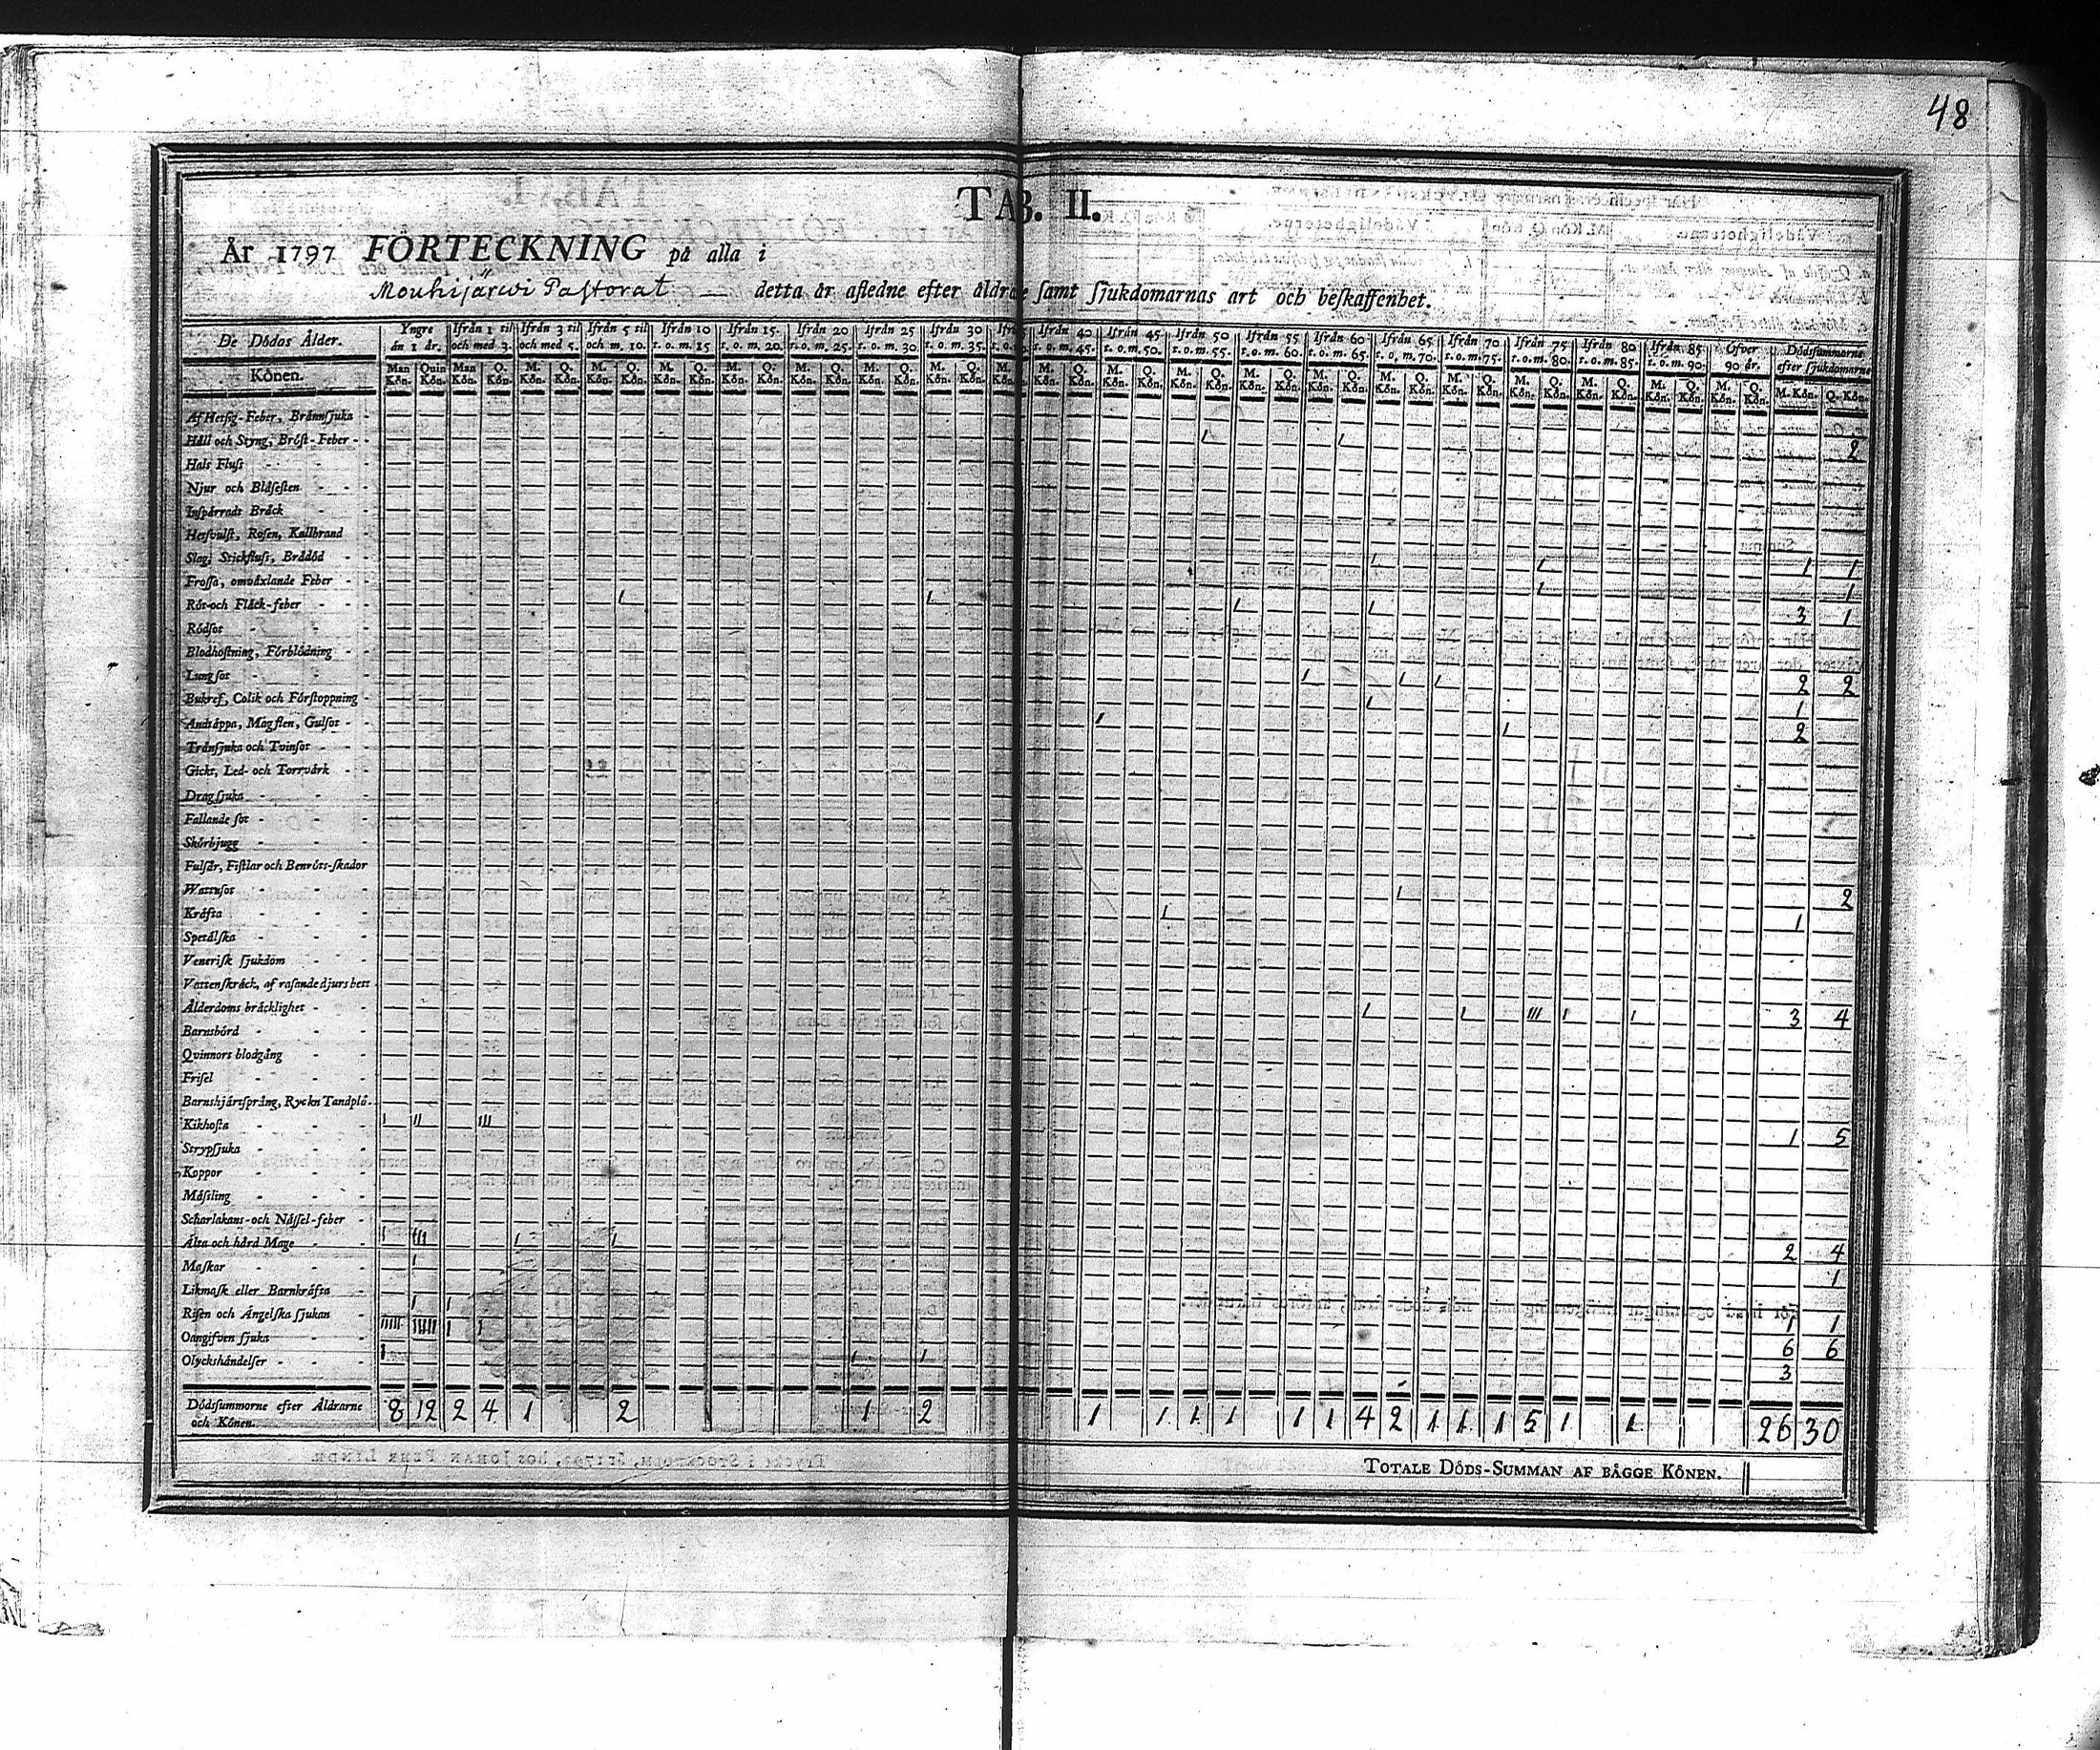 48
TAB. II.
År 1797 FÖRTECKNING på alla i
Mouhijärwi Pastorat — detta år afledne efter åldrar samt sjukdomarnas art och beskaffenhet.
De Dödas Ålder. Yngre än 1 år. Ifrån 1 til och med 3. Ifrån 3 til och med 5. Ifrån 5 til och m. 10. Ifrån 10 t. o. m. 15 Ifrån 15. t. o. m. 20. Ifrån 20 t. o. m. 25. Ifrån 25 t. o. m. 30. Ifrån 30 t. o. m. 35. Ifrån 40 t. o. m. 45. Ifrån 45 t. o. m. 50. Ifrån 50 t. o. m. 55. Ifrån 55 t. o. m. 60. Ifrån 60 t. o. m. 65. Ifrån 65 t. o. m. 70. Ifrån 70 t. o. m. 75. Ifrån 75 t. o. m. 80. Ifrån 80 t. o. m. 85. Ifrån 85 t. o. m. 90. Öfver 90 år. Dödssummorne efter sjukdomarne
Könen. Man Kön. Quin Kön. Man Kön. Q. Kön. M. Kön. Q. Kön. M. Kön. Q. Kön. M. Kön. Q. Kön. M. Kön. Q. Kön. M. Kön. Q. Kön. M. Kön. Q. Kön. M. Kön. Q. Kön. M. Kön. Q. Kön. M. Kön. Q. Kön. M. Kön. Q. Kön. M. Kön. Q. Kön. M. Kön. Q. Kön. M. Kön. Q. Kön. M. Kön. Q. Kön. M. Kön. Q. Kön. M. Kön. Q. Kön. M. Kön. Q. Kön. M. Kön. Q. Kön. M. Kön. Q. Kön.
Af Hetsig-Feber, Brännsjuka
Håll och Styng, Bröst-Feber 1 1 2
Hals Fluss
Njur och Blåsesten
Inspärradt Bråck
Hetsvulst, Rosen, Kallbrand
Slag, Stickfluss, Brådöd 1 1 1 1
Frossa, omväxlande Feber 1 1
Röt-och Fläck-feber 1 1 1 1 3 1
Rödsot
Blodhostning, Förblödning
Lungsot 1 1 1 2 2
Bukref, Colik och Förstoppning 1 1
Andtäppa, Mågsten, Gulsot 1 1 2
Trånsjuka och Tvinsot
Gickt, Led- och Torrvärk
Dragsjuka
Fallande sot
Skörbjugg
Fulsår, Fistlar och Benröts-skador
Wattusot 1 2
Kräfta 1 1
Spetälska
Venerisk sjukdom
Vattenskräck, af rasande djurs bett
Ålderdoms bräcklighet 1 1 III 1 1 3 4
Barnsbörd
Qvinnors blodgång
Frisel
Barnshjärtsprång, Ryck n Tandplå.
Kikhosta I II III 1 5
Strypsjuka
Koppor
Mässling
Scharlakans-och Nässel-feber
Älta och hård Mage I III 1 1 2 4
Maskar 1 1
Likmask eller Barnkräfta
Risen och Ängelska sjukan 1 1 1 1
Oangifven sjuka IIIII IIIII 1 1 6 6
Olyckshändelser 1 1 1 3
Dödssummorne efter Åldrarne 8 12 2 4 1 2 1 2 1 1 1 1 1 1 4 2 1 1 1 5 1 1 26 30
och Könen.
TOTALE DÖDS-SUMMAN AF BÄGGE KÖNEN.